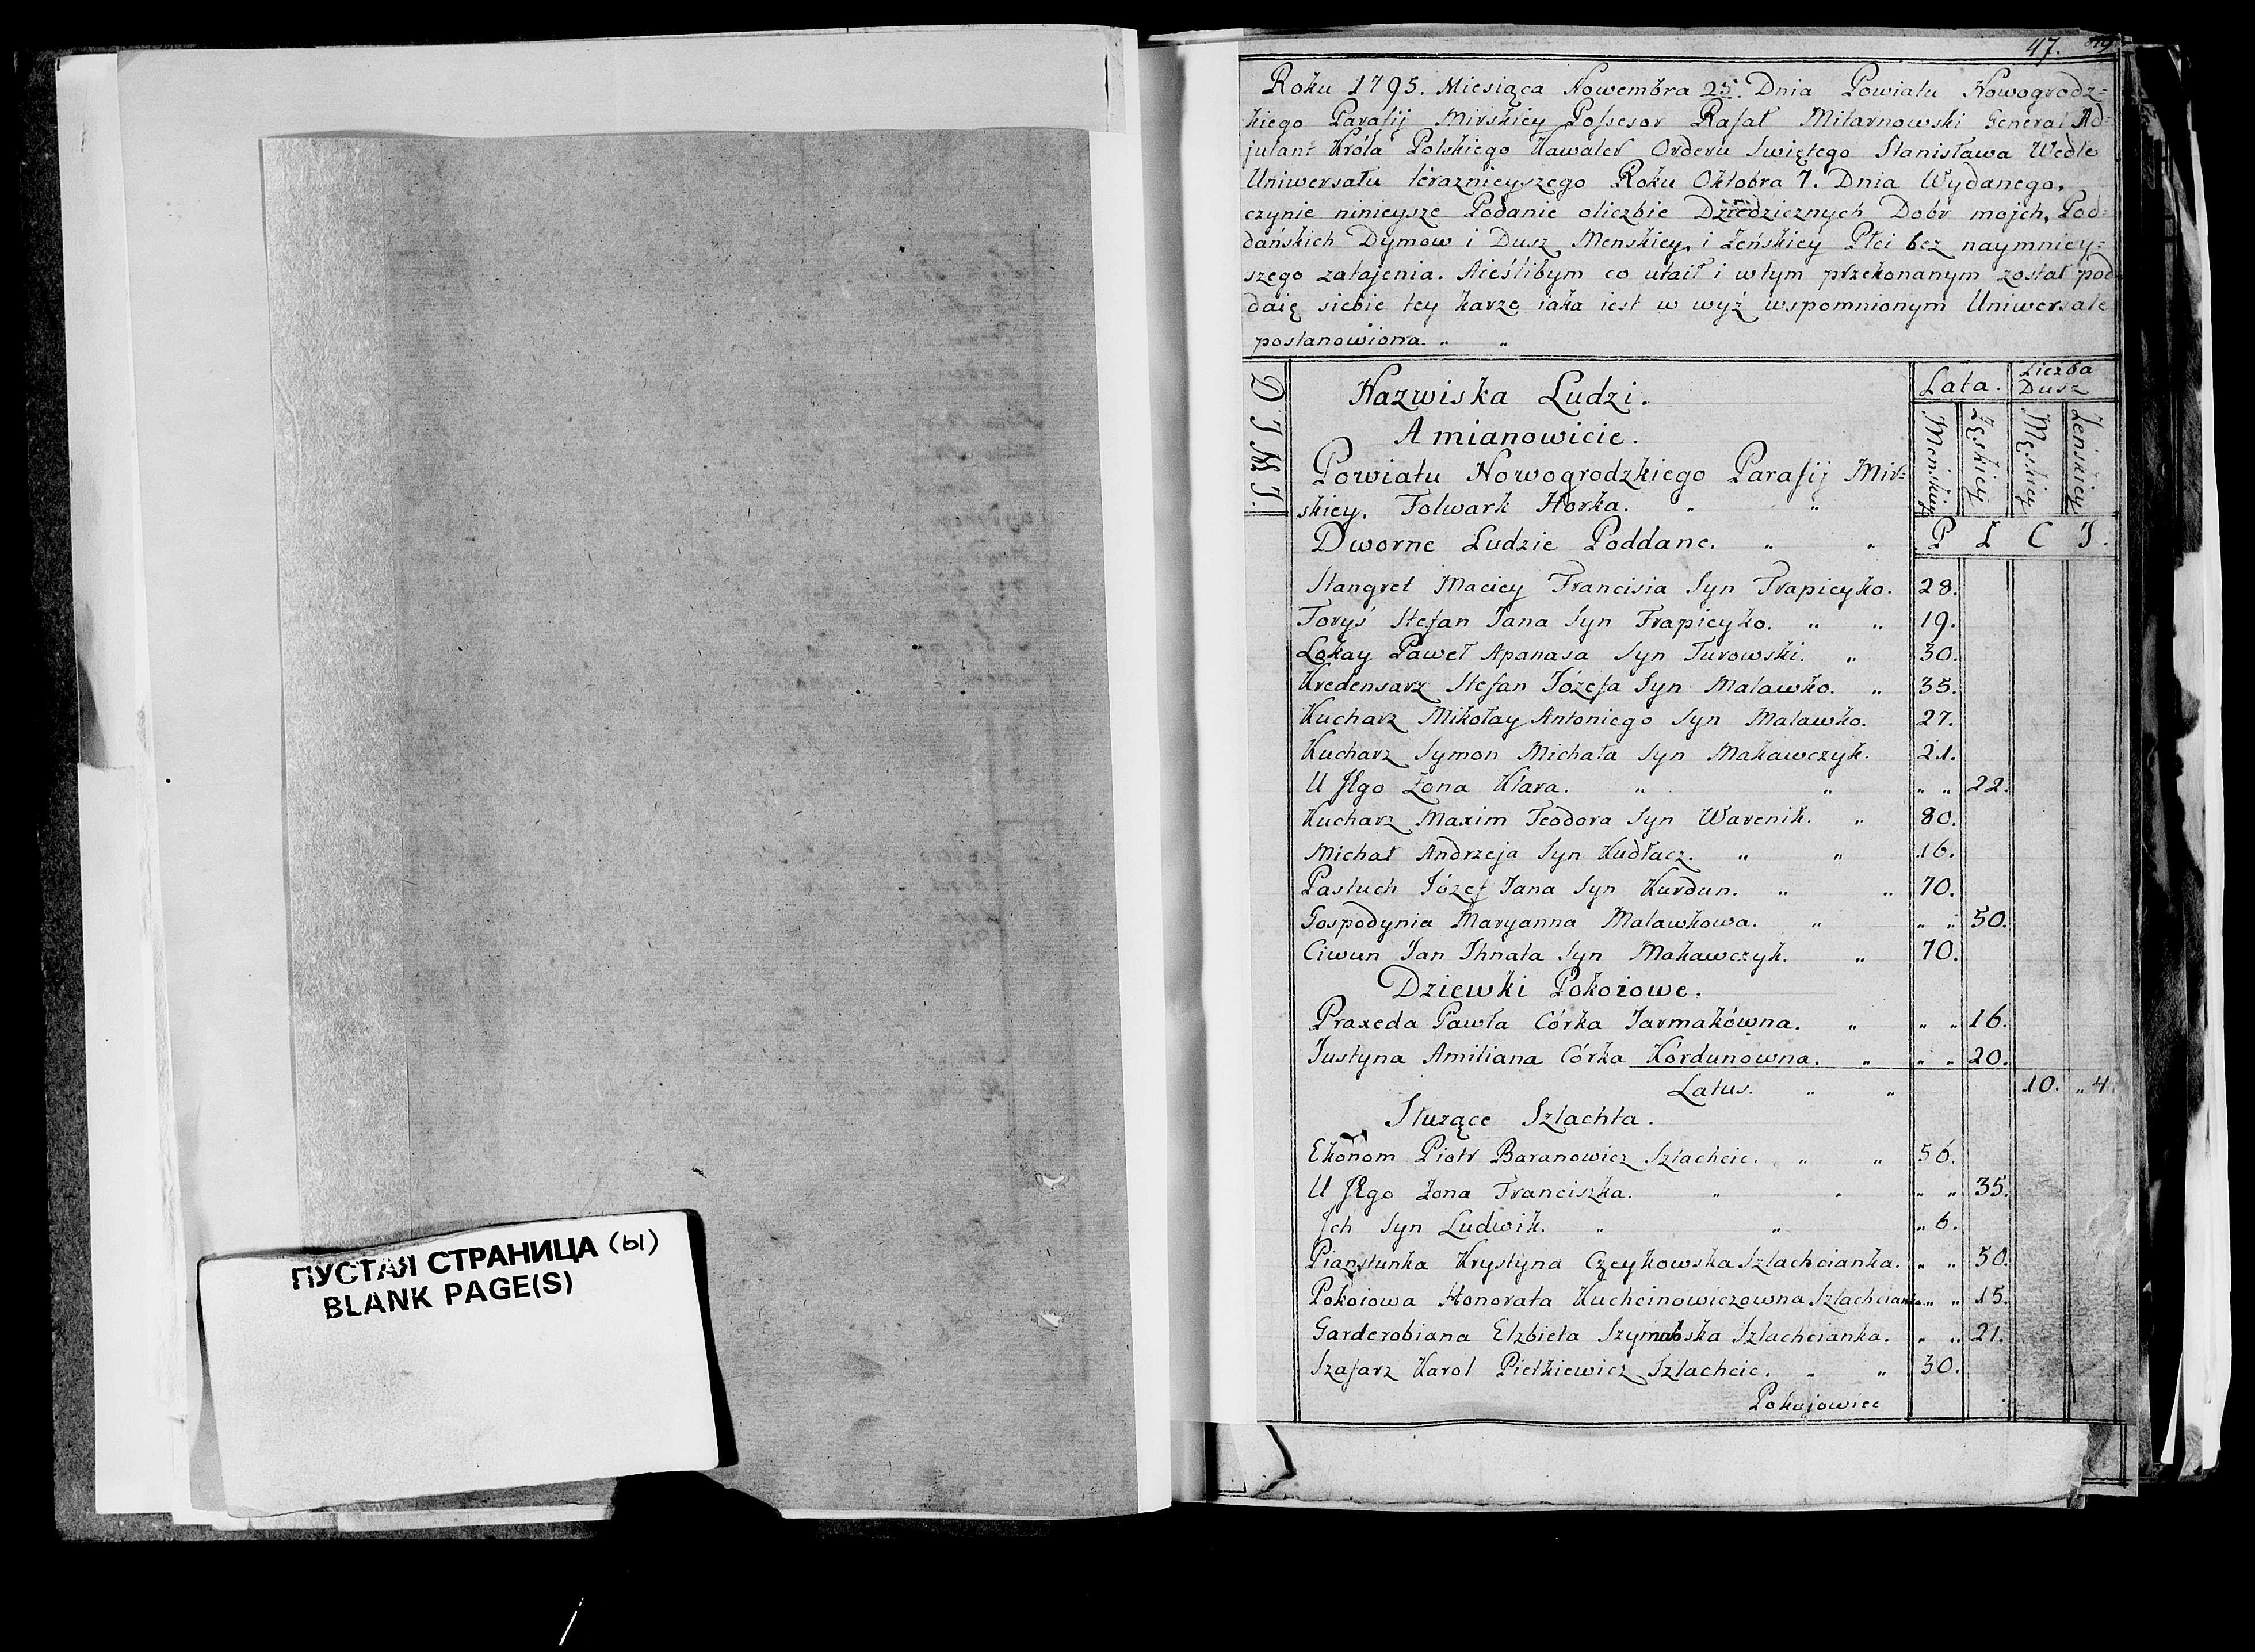 ПУСТАЯ СТРАНИЦА (ы)
BLANK PAGE(S)
47.
Roku 1795. Miesiąca Nowembra 25. Dnia Powiatu Nowogrodz=
kiego Parafij Mirskiey Possesor Rafał Milarnowski General Ad=
jutant Króla Polskiego Kawaler Orderu Swiętego Stanisława Wedle
Uniwersału teraznieyszego Roku Oktobra 7. Dnia Wydanego,
czynie ninieysze Podanie oliczbie Dziedzicznych Dobr mojch, Pod=
dańskich Dymow i Dusz Menskiey, i Żeńskiey Płci bez naymniey=
szego zatajenia. Aieślibym co utaił i wtym przekonanym został pod=
daię siebie tey karze iaka iest w wyż wspomnionym Uniwersale
postanowiona. " "
DIMI.
Nazwiska Ludzi.
Amianowicie.
Powiatu Nowogrodzkiego Parafij Mir=
skiey, Folwark Horka. " "
Dworne Ludzie Poddane. " "
Lata.
Liczba Dusz
Męnskiey
Żęskiey
Męskiey
Żeńskiey
P Ł C I.
Stangret Maciey Francisia Syn Trapieyko. 28.
Foryś Stefan Jana Syn Trapieyko. " " 19.
Lokay Paweł Apanasa Syn Turowski. " 30.
Kredensarz Stefan Józefa Syn Malawko. " 35.
Kucharz Mikołay Antoniego Syn Malawko. 27.
Kucharz Symon Michała Syn Makawczyk. 21.
U Jego Żona Klara. " " " " 22.
Kucharz Maxim Teodora Syn Warenik. " 80.
Michał Andrzeja Syn Kudłacz. " " 16.
Pastuch Józef Jana Syn Kurdun. " " 70.
Gospodynia Maryanna Malawkowa. " " " 50.
Ciwun Jan Jhnata Syn Makawczyk. " 70.
Dziewki Pokoiowe.
Praxeda Pawła Córka Jarmakówna. " " " 16.
Justyna Amiliana Córka Kórdunowna. " " " 20.
Latus. " " 10. " 4.
Służące Szlachta.
Ekonom Piotr Baranowicz Szlachcic. " " 56.
U Jego Żona Franciszka. " " " " 35.
Jch Syn Ludwik. " " " 6.
Piastunka Krystyna Czeykowska Szlachcianka. " " 50.
Pokoiowa Honorata Kuchcinowiczowna Szlachcianka " " 15.
Garderobiana Elzbieta Szymańska Szlachcianka. " " 21.
Szafarz Karol Pietkiewicz Szlachcic. " " 30.
Pokojowiec